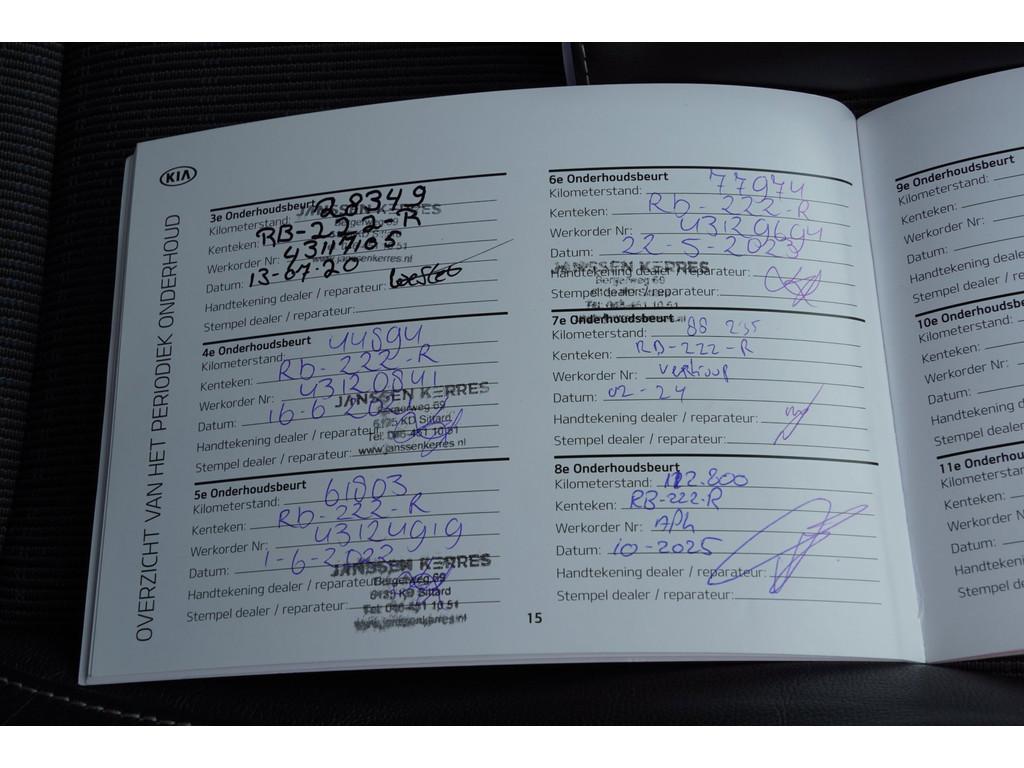 KIA
OVERZICHT VAN HET PERIODIEK ONDERHOUD
3e Onderhoudsbeurt
Kilometerstand: 28349
Kenteken: RB-222-R
Werkorder Nr: 43117105
Datum: 13-07-20
Handtekening dealer / reparateur:
Stempel dealer / reparateur:
JANSSEN KERRES
Bergerweg 69
www.janssenkerres.nl
4e Onderhoudsbeurt
Kilometerstand: 44894
Kenteken: Rb-222-R
Werkorder Nr: 43120841
Datum: 16-6-
Handtekening dealer / reparateur:
Stempel dealer / reparateur:
JANSSEN KERRES
Bergerweg 69
6135 KD Sittard
Tel: 046-451 10 51
www.janssenkerres.nl
5e Onderhoudsbeurt
Kilometerstand: 61803
Kenteken: Rb-222-R
Werkorder Nr: 43124919
Datum: 1-6-2022
Handtekening dealer / reparateur:
Stempel dealer / reparateur:
JANSSEN KERRES
Bergerweg 69
6135 KD Sittard
Tel: 046-451 10 51
www.janssenkerres.nl
6e Onderhoudsbeurt
Kilometerstand: 77974
Kenteken: Rb-222-R
Werkorder Nr: 43129694
Datum: 22-5-2023
Handtekening dealer / reparateur:
Stempel dealer / reparateur:
JANSSEN KERRES
Bergerweg 69
Tel: 046-451 10 51
7e Onderhoudsbeurt
Kilometerstand: 88 235
Kenteken: RB-222-R
Werkorder Nr: verkoop
Datum: 02-24
Handtekening dealer / reparateur:
Stempel dealer / reparateur:
8e Onderhoudsbeurt
Kilometerstand: 112.800
Kenteken: RB-222-R
Werkorder Nr: APK
Datum: 10-2025
Handtekening dealer / reparateur:
Stempel dealer / reparateur:
15
9e Onderhoudsbeurt
Kilometerstand:
Kenteken:
Werkorder Nr:
Datum:
Handtekening d
Stempel dealer
10e Onderhou
Kilometerstan
Kenteken:
Werkorder Nr
Datum:
Handtekening
Stempel deal
11e Onderhou
Kilometerst
Kenteken:
Werkorder
Datum:
Handteken
Stempel de